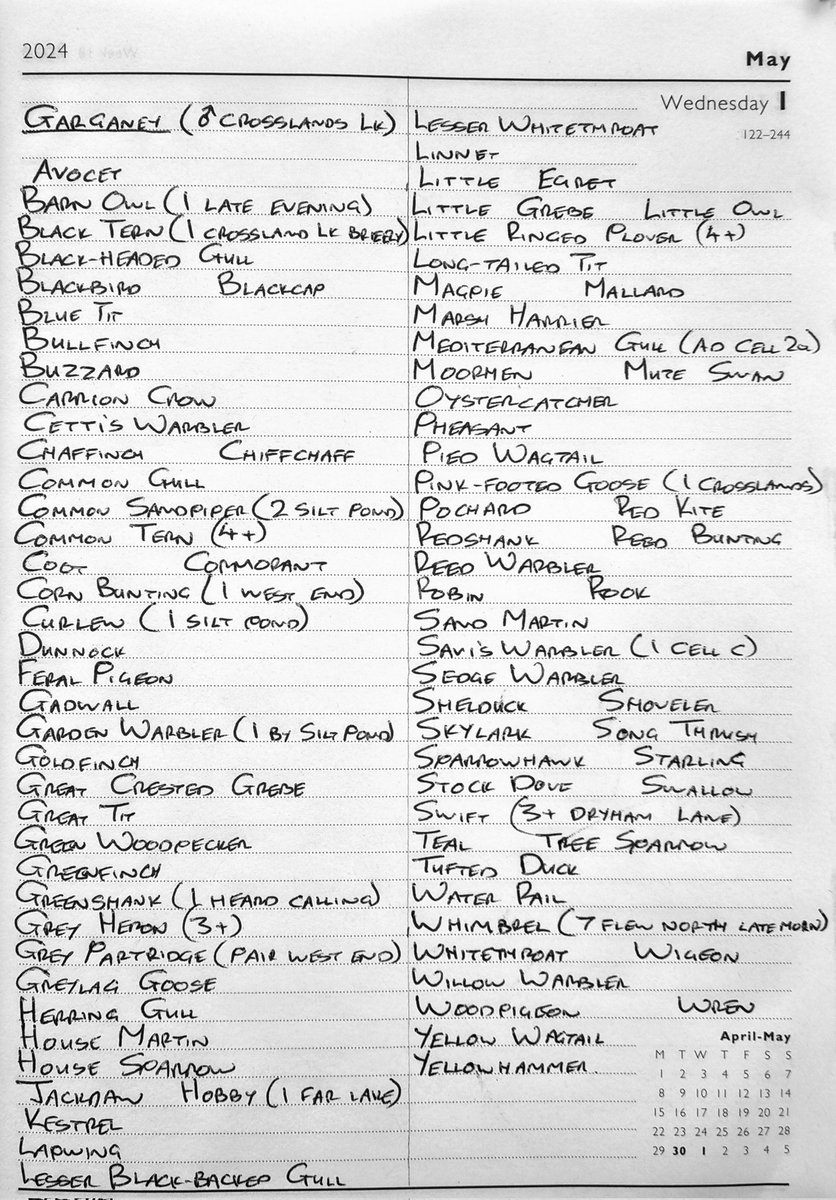 2024
May
Wednesday 1
122–244
GARGANEY (♂ CROSSLANDS LK)
AVOCET
BARN OWL (1 LATE EVENING)
BLACK TERN (1 CROSSLAND LK BRIEFLY)
BLACK-HEADED GULL
BLACKBIRD BLACKCAP
BLUE TIT
BULLFINCH
BUZZARD
CARRION CROW
CETTI'S WARBLER
CHAFFINCH CHIFFCHAFF
COMMON GULL
COMMON SANDPIPER (2 SILT POND)
COMMON TERN (4+)
COOT CORMORANT
CORN BUNTING (1 WEST END)
CURLEW (1 SILT POND)
DUNNOCK
FERAL PIGEON
GADWALL
GARDEN WARBLER (1 BY SILT POND)
GOLDFINCH
GREAT CRESTED GREBE
GREAT TIT
GREEN WOODPECKER
GREENFINCH
GREENSHANK (1 HEARD CALLING)
GREY HERON (3+)
GREY PARTRIDGE (PAIR WEST END)
GREYLAG GOOSE
HERRING GULL
HOUSE MARTIN
HOUSE SPARROW
JACKDAW HOBBY (1 FAR LAKE)
KESTREL
LAPWING
LESSER BLACK-BACKED GULL
LESSER WHITETHROAT
LINNET
LITTLE EGRET
LITTLE GREBE LITTLE OWL
LITTLE RINGED PLOVER (4+)
LONG-TAILED TIT
MAGPIE MALLARD
MARSH HARRIER
MEDITERRANEAN GULL (AD CELL 2a)
MOORHEN MUTE SWAN
OYSTERCATCHER
PHEASANT
PIED WAGTAIL
PINK-FOOTED GOOSE (1 CROSSLANDS)
POCHARD RED KITE
REDSHANK REED BUNTING
REED WARBLER
ROBIN ROOK
SAND MARTIN
SAVI'S WARBLER (1 CELL C)
SEDGE WARBLER
SHELDUCK SHOVELER
SKYLARK SONG THRUSH
SPARROWHAWK STARLING
STOCK DOVE SWALLOW
SWIFT (3+ DRYHAM LANE)
TEAL TREE SPARROW
TUFTED DUCK
WATER RAIL
WHIMBREL (7 FLEW NORTH LATE MORN)
WHITETHROAT WIGEON
WILLOW WARBLER
WOODPIGEON WREN
YELLOW WAGTAIL
YELLOWHAMMER.
April-May
M T W T F S S
1 2 3 4 5 6 7
8 9 10 11 12 13 14
15 16 17 18 19 20 21
22 23 24 25 26 27 28
29 30 1 2 3 4 5